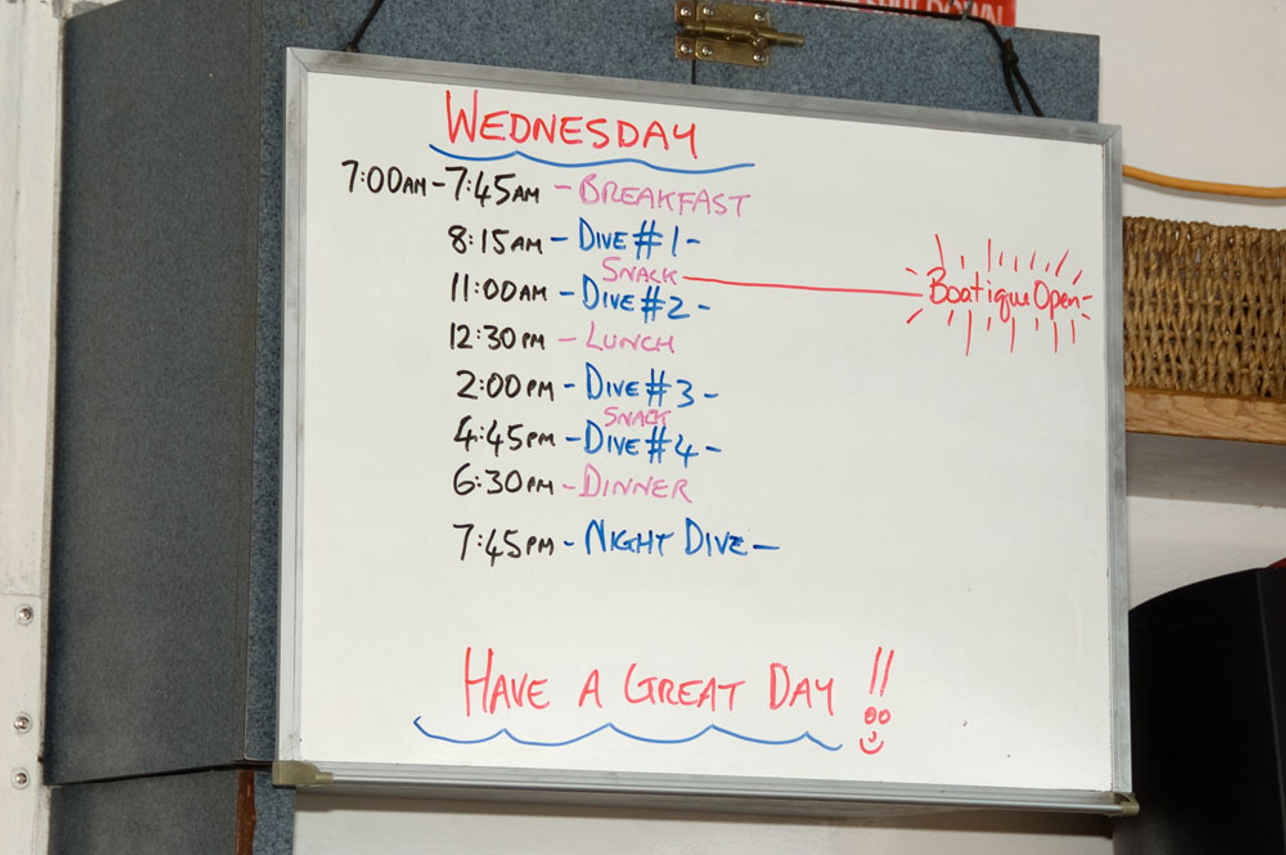 SHUTDOWN
WEDNESDAY
7:00AM-7:45AM - BREAKFAST
8:15AM - DIVE #1 -
SNACK
Boatique Open-
11:00AM - DIVE #2 -
12:30PM - LUNCH
2:00PM - DIVE #3 -
SNACK
4:45PM - DIVE #4 -
6:30PM - DINNER
7:45PM - NIGHT DIVE -
HAVE A GREAT DAY !!